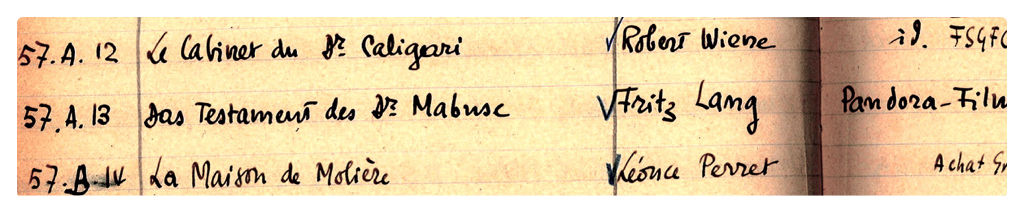 57.A.12 Le Cabinet du Dr Caligari √ Robert Wiene id. FSGFC
57.A.13 Das Testament des Dr Mabuse √ Fritz Lang Pandora-Film
57.A.14 La Maison de Molière √ Léonce Perret Achat